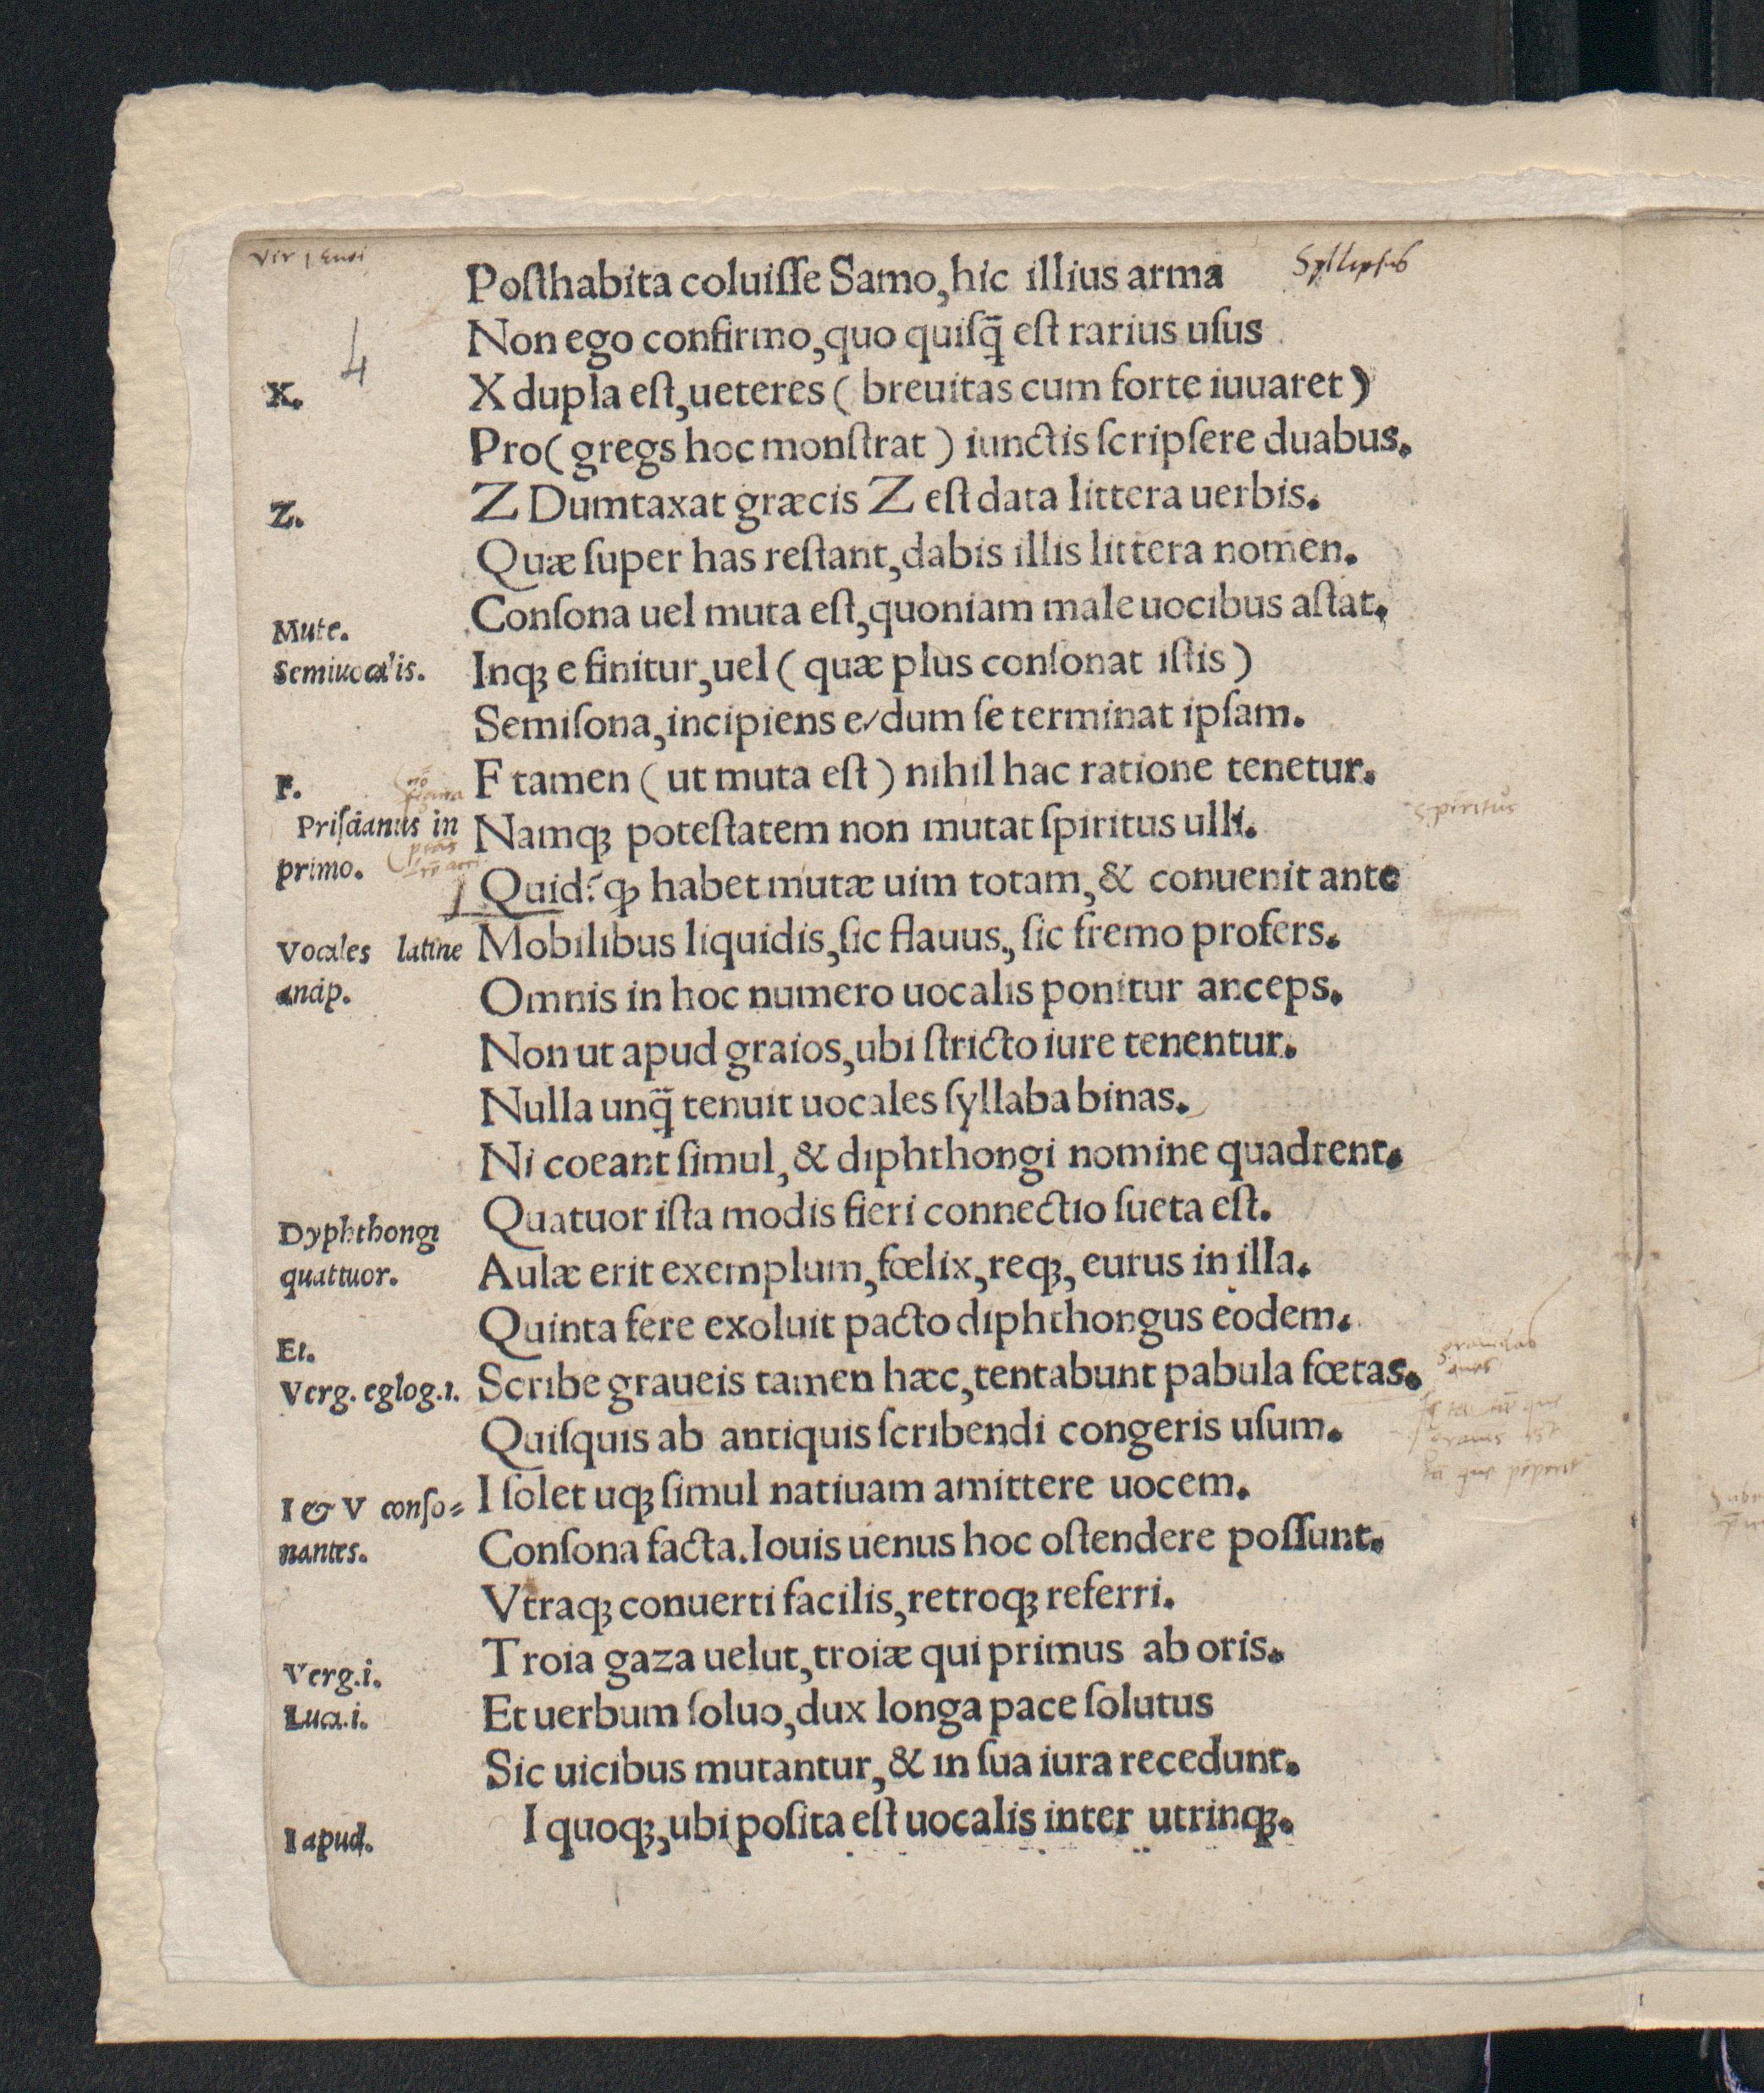 Syllepsis
Poſthabita coluiſſe Samo, hic illius arma
4
Non ego confirmo, quo quiſq̃ eſt rarius uſus
X.
X dupla eſt, ueteres ( breuitas cum forte iuuaret )
Pro ( gregs hoc monſtrat ) iunctis ſcripſere duabus.
Z.
Z Dumtaxat græcis Z eſt data littera uerbis.
Quæ ſuper has reſtant, dabis illis littera nomen.
Mute.
Conſona uel muta eſt, quoniam male uocibus aſtat,
Semiuocalis.
Inqꝫ e finitur, uel ( quæ plus conſonat iſtis )
Semiſona, incipiens e/dum ſe terminat ipſam.
F.
F tamen ( ut muta eſt ) nihil hac ratione tenetur.
Priſcianus in
primo.
Namqꝫ poteſtatem non mutat ſpiritus ulli.
spiritus
Quid? ꝙ habet mutæ uim totam, & conuenit ante
Vocales latine
ancip.
Mobilibus liquidis, ſic flauus, ſic fremo profers.
Omnis in hoc numero uocalis ponitur anceps.
Non ut apud graios, ubi ſtricto iure tenentur.
Nulla unq̃ tenuit uocales ſyllaba binas.
Ni coeant ſimul, & diphthongi nomine quadrent.
Dyphthongi
quattuor.
Quatuor iſta modis fieri connectio ſueta eſt.
Aulæ erit exemplum, fœlix, reqꝫ, eurus in illa.
Quinta fere exoluit pacto diphthongus eodem.
Ei.
Verg. eglog.i.
Scribe graueis tamen hæc, tentabunt pabula fœtas.
Quiſquis ab antiquis ſcribendi congeris uſum.
I & V conſo⸗
nantes.
I ſolet uqꝫ ſimul natiuam amittere uocem.
Conſona facta. Iouis uenus hoc oſtendere poſſunt.
Vtraqꝫ conuerti facilis, retroqꝫ referri.
Verg.i.
Troia gaza uelut, troiæ qui primus ab oris.
Luca.i.
Et uerbum ſoluo, dux longa pace ſolutus
Sic uicibus mutantur, & in ſua iura recedunt.
I apud.
I quoqꝫ, ubi poſita eſt uocalis inter utrinqꝫ.